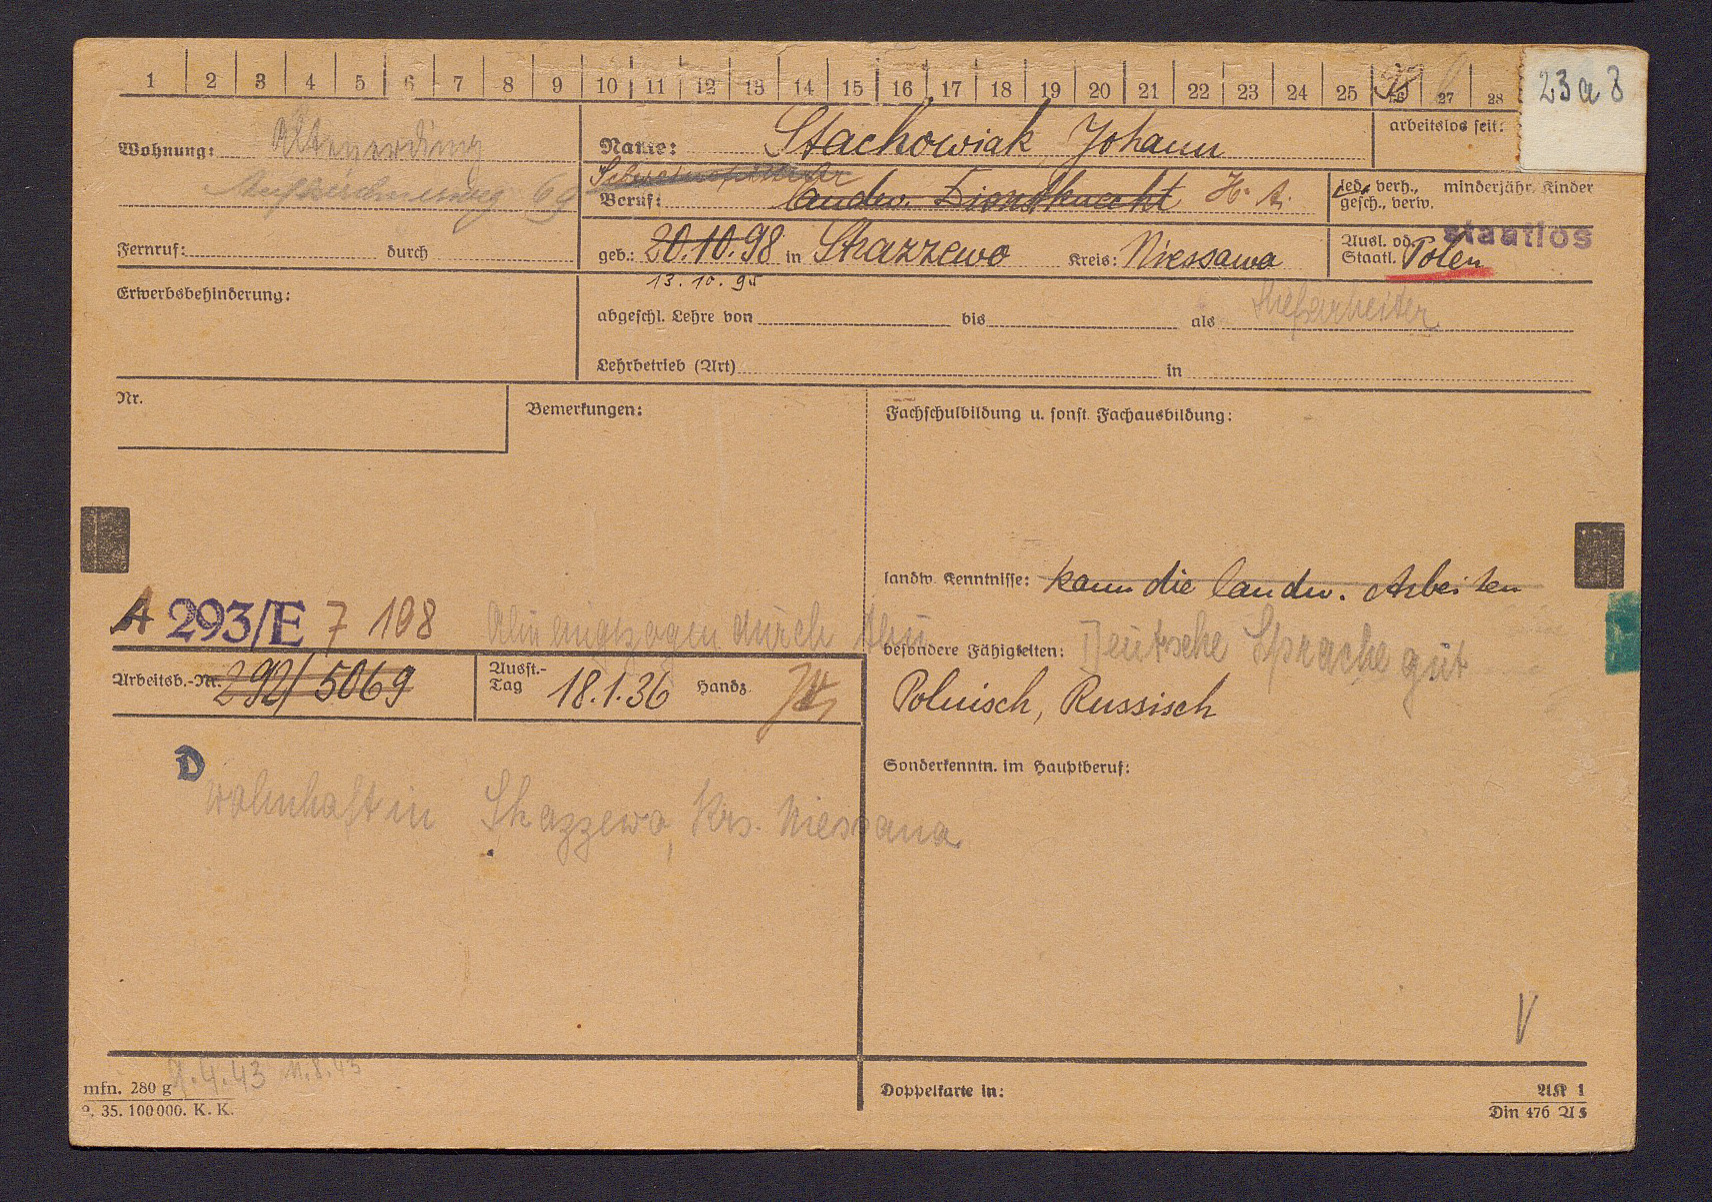 1 2 3 4 5 6 7 8 9 10 11 12 13 14 15 16 17 18 19 20 21 22 23 24 25 26 27 28
23 a 8
Wohnung: Altenerding
Aufkirchnerweg 69
Name: Stachowiak, Johann
arbeitslos seit:
Beruf: landw. Dienstknecht H. A.
led., verh., minderjähr. Kinder
gesch., verw.
Fernruf: durch
geb.: 20.10.98 in Skazzewo Kreis: Niessawa
13.10.95
Ausl. od. staatlos
Staatl. Polen
Erwerbsbehinderung:
abgeschl. Lehre von bis als
Lehrbetrieb (Art) in
Nr.
Bemerkungen:
Fachschulbildung u. sonst. Fachausbildung:
landw. Kenntnisse: kann die landw. Arbeiten
A 293/E 7 108
durch
besondere Fähigkeiten: Deutsche Sprache gut
Polnisch, Russisch
Arbeitsb.-Nr. 292/5069
Ausst.-Tag 18.1.36 Handz.
D
wohnhaft in Skazzewo, Krs. Niessawa
Sonderkenntn. im Hauptberuf:
V
4.43 11.8.43
mfn. 280 g
9. 35. 100000. K. K.
Doppelkarte in:
AK 1
Din 476 A 5